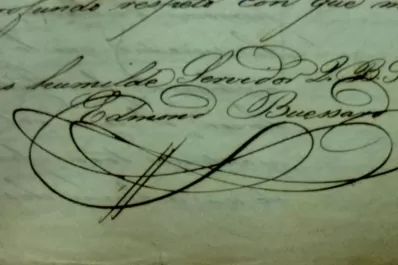 profundo respeto con que
humilde Servidor Q. B.
Edmond Buessard